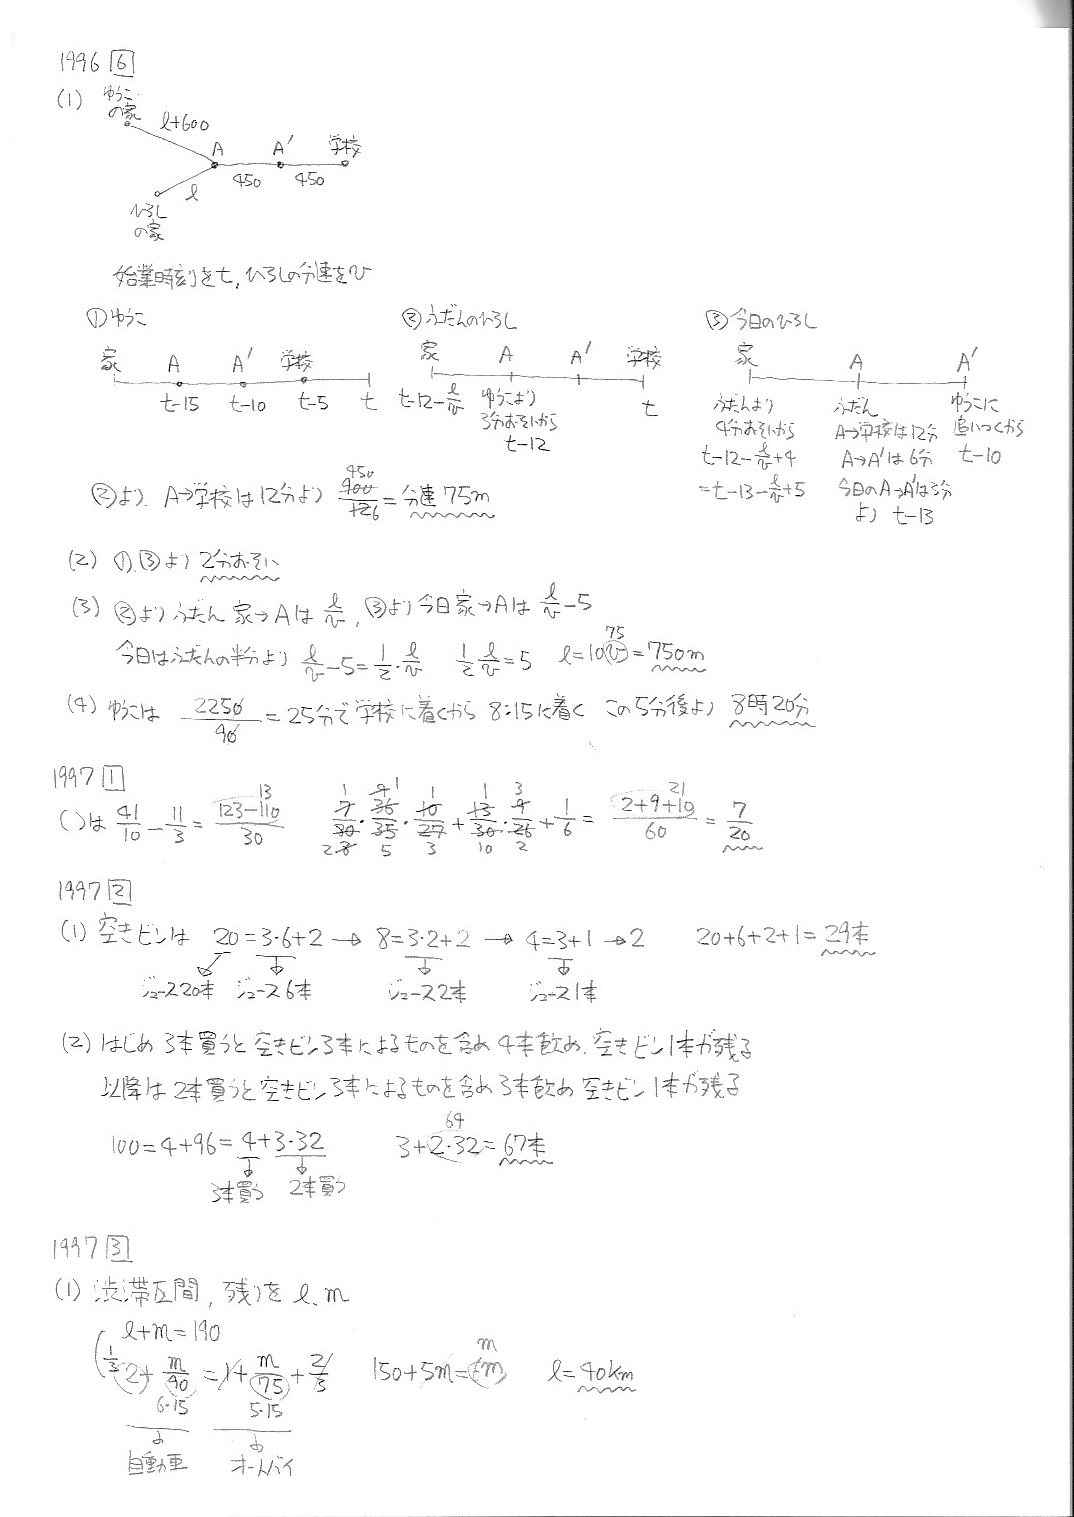 1996 6
(1) ゆうこの家 l+600 A A' 学校
450 450
l
ひろしの家
始業時刻をt, ひろしの分速をv
①ゆうこ ②ふだんのひろし ③今日のひろし
家 A A' 学校 家 A A' 学校 家 A A'
t-15 t-10 t-5 t
t-12-l/v ゆうこより3分おそいから t-12 t
ふだんより4分おそいから t-12-l/v+4 =t-13-l/v+5
ふだんA→学校は12分 A→A'は6分 今日のA→A'は3分より t-13
ゆうこに追いつくから t-10
②より、A→学校は12分より 900/12 450 6 = 分速75m
(2) ①,③より 2分おそい
(3) ②よりふだん 家→Aは l/v, ③より今日家→Aは l/v-5
今日はふだんの半分より l/v-5=1/2・l/v 1/2・l/v=5 l=10v 75 =750m
(4) ゆうこは 2250/90 =25分で学校に着くから 8:15に着く この5分後より 8時20分
1997 1
( )は 41/10-11/3=(123-110)/30 13 7/30・36/35・10/27+13/30・9/26+1/6=(2+9+10)/60 21 =7/20
1997 2
(1) 空きビンは 20=3・6+2 → 8=3・2+2 → 4=3+1 → 2 20+6+2+1=29本
ジュース20本 ジュース6本 ジュース2本 ジュース1本
(2) はじめ 3本買うと空きビン3本によるものを含め 4本飲め、空きビン1本が残る
以降は2本買うと空きビン3本によるものを含め3本飲め 空きビン1本が残る
100=4+96=4+3・32 3+2・32 64 =67本
3本買う 2本買う
1997 3
(1) 渋滞区間, 残りを l, m
l+m=190
1/3 2+m/90=1+m/75+2/3 150+5m=6m m l=40km
6・15 5・15
自動車 オートバイ